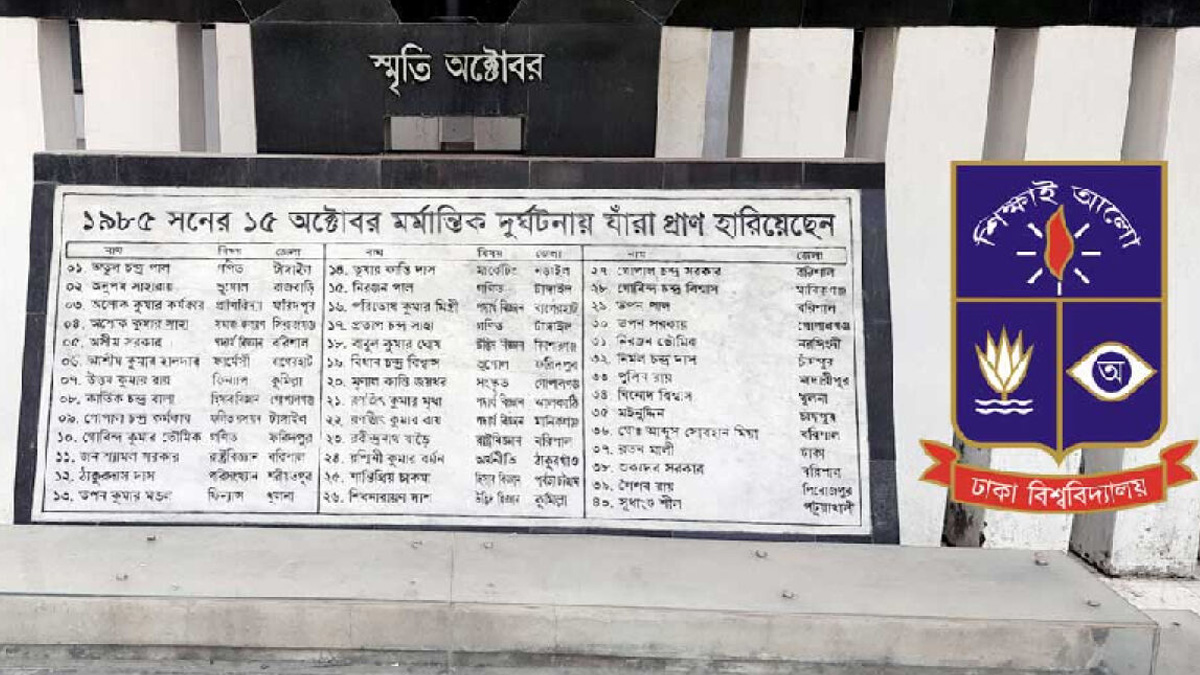 স্মৃতি অক্টোবর
১৯৮৫ সনের ১৫ অক্টোবর মর্মান্তিক দুর্ঘটনায় যাঁরা প্রাণ হারিয়েছেন
নাম বিষয় জেলা
০১. অতুল চন্দ্র পাল গণিত টাঙ্গাইল
০২. অনুপম সাহারায় ভূগোল রাজবাড়ি
০৩. অশোক কুমার কর্মকার প্রাণিবিদ্যা ফরিদপুর
০৪. অশোক কুমার সাহা সমাজ কল্যাণ সিরাজগঞ্জ
০৫. অসীম সরকার পদার্থ বিজ্ঞান বরিশাল
০৬. আশীষ কুমার হালদার ফার্মেসী বাগেরহাট
০৭. উত্তম কুমার রায় ফিন্যান্স কুমিল্লা
০৮. কার্তিক চন্দ্র বালা হিসাববিজ্ঞান গোপালগঞ্জ
০৯. গোপাল চন্দ্র কর্মকার ফলিত রসায়ন টাঙ্গাইল
১০. গোবিন্দ কুমার ভৌমিক গণিত ফরিদপুর
১১. জন শ্যামল সরকার রাষ্ট্রবিজ্ঞান বরিশাল
১২. ঠাকুরদাস দাস পরিসংখ্যান শরীয়তপুর
১৩. তপন কুমার মন্ডল ফিন্যান্স খুলনা
নাম বিষয় জেলা
১৪. তুষার কান্তি দাস মার্কেটিং নড়াইল
১৫. নিরঞ্জন পাল গণিত টাঙ্গাইল
১৬. পরিতোষ কুমার মিস্ত্রী পদার্থ বিজ্ঞান বাগেরহাট
১৭. প্রতাপ চন্দ্র সাহা গণিত টাঙ্গাইল
১৮. বাবুল কুমার ঘোষ উদ্ভিদ বিজ্ঞান
১৯. বিধান চন্দ্র বিশ্বাস ভূগোল ফরিদপুর
২০. মৃণাল কান্তি জয়ধর সংস্কৃত গোপালগঞ্জ
২১. রণজিৎ কুমার মৃধা পদার্থ বিজ্ঞান ঝালকাঠি
২২. রণজিৎ কুমার রায় পদার্থ বিজ্ঞান মানিকগঞ্জ
২৩. রবীন্দ্রনাথ বাড়ৈ রাষ্ট্রবিজ্ঞান বরিশাল
২৪. রশ্মিনী কুমার বর্মন অর্থনীতি ঠাকুরগাঁও
২৫. শান্তিপ্রিয় চাকমা হিসাব বিজ্ঞান
২৬. শিবনারায়ণ দাশ উদ্ভিদ বিজ্ঞান কুমিল্লা
নাম জেলা
২৭. গোপাল চন্দ্র সরকার বরিশাল
২৮. গোবিন্দ চন্দ্র বিশ্বাস মানিকগঞ্জ
২৯. তপন পাল বরিশাল
৩০. তপন সরকার গোপালগঞ্জ
৩১. নিরঞ্জন ভৌমিক নরসিংদী
৩২. নির্মল চন্দ্র দাস চাঁদপুর
৩৩. পুলিন রায় মাদারীপুর
৩৪. বিনোদ বিশ্বাস খুলনা
৩৫. মইনুদ্দিন চাঁদপুর
৩৬. মোঃ আব্দুস সোবহান মিয়া বরিশাল
৩৭. রতন মালী ঢাকা
৩৮. সরকার বরিশাল
৩৯. শৈশব রায় পিরোজপুর
৪০. সুধাংশু শীল পটুয়াখালী
শিক্ষাই আলো
অ
ঢাকা বিশ্ববিদ্যালয়